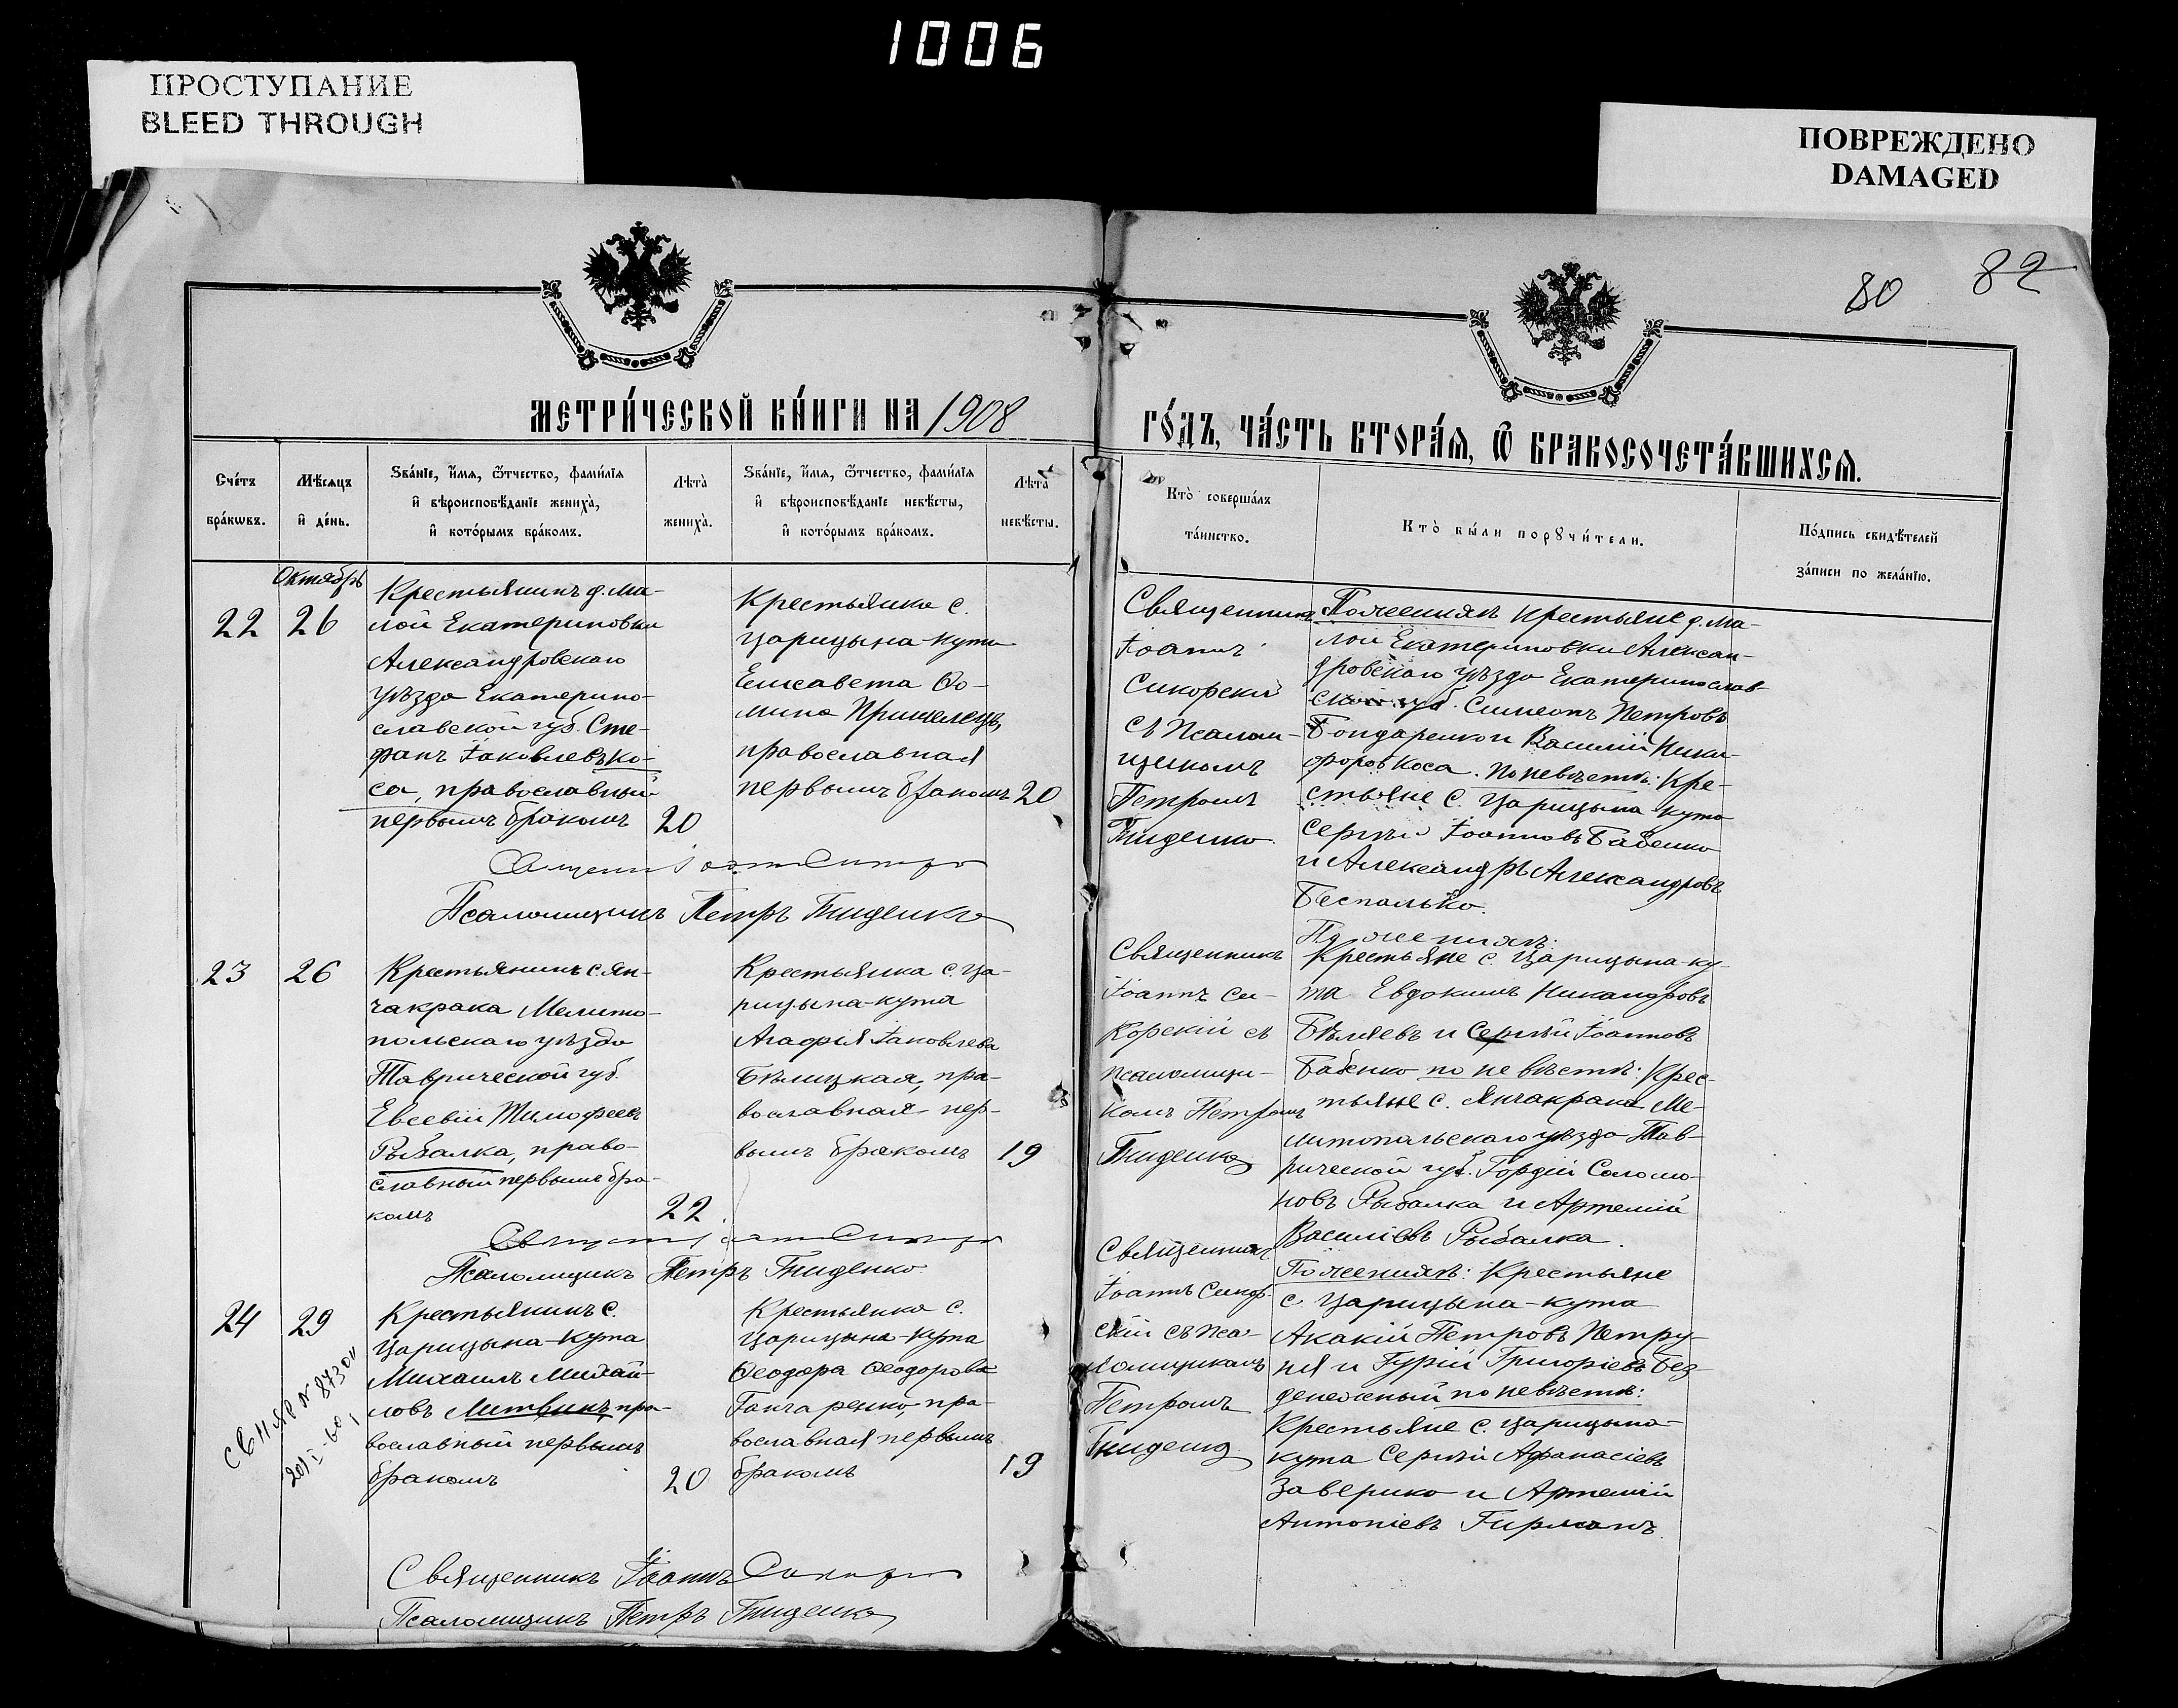 1006
ПРОСТУПАНИЕ
BLEED THROUGH
ПОВРЕЖДЕНО
DAMAGED
80 82
МЕТРИ́ЧЕСКОЙ КНИ́ГИ НА 1908
ГО́ДЪ, ЧА́СТЬ ВТОРА́Ѧ, Ѽ БРАКОСОЧЕТА́ВШИХСѦ.
Сче́тъ бра́кѡвъ.
Мѣ́сѧцъ и҆ де́нь.
Ѕва́нїе, и҆́мѧ, ѻ҆́тчество, фами́лїѧ и҆ вѣроисповѣ́данїе жениха̀, и҆ кото́рымъ бра́комъ.
Лѣта̀ жениха̀.
Ѕва́нїе, и҆́мѧ, ѻ҆́тчество, фами́лїѧ и҆ вѣроисповѣ́данїе невѣ́сты, и҆ кото́рымъ бра́комъ.
Лѣта̀ невѣ́сты.
Кто̀ соверша́лъ та́инство.
Кто̀ бы́ли порꙋчи́тели.
По́дпись свидѣ́телей за́писи по жела́нїю.
Октябрь
22
26
Крестьянинъ д. Ма-
лой Екатериновки
Александровскаго
уѣзда Екатерино-
славской губ. Сте-
фанъ Іаковлевъ Ко-
са, православный
первымъ бракомъ
20
Крестьянка с.
Царицына-Кута
Елисавета Ѳо-
мина Пришелецъ,
православная
первымъ бракомъ
20
Священникъ
Іоаннъ
Сикорскій
съ Псалом-
щикомъ
Петромъ
Гниденко.
По женихѣ крестьяне д. Ма-
лой Екатериновки Алексан-
дровскаго уѣзда Екатеринослав-
ской губ. Симеонъ Петровъ
Бондаренко и Василій Ники-
форовъ Коса. по невѣстѣ: Кре-
стьяне с. Царицына-Кута
Сергѣй Іоанновъ Бабенко
и Александръ Александровъ
Беспалько.
Псаломщикъ Петръ Гниденко
23
26
Крестьянинъ с. Ян-
чакрака Мелито-
польскаго уѣзда
Таврической губ.
Евсевій Тимофеевъ
Рыбалка, право-
славный первымъ бра-
комъ
22
Крестьянка с. Ца-
рицына-Кута
Агафія Іаковлева
Бѣлицкая, пра-
вославная-пер-
вымъ бракомъ
19
Священникъ
Іоаннъ Си-
корскій съ
псаломщи-
комъ Петромъ
Гниденко
По женихѣ:
Крестьяне с. Царицына-Ку-
та Евдокимъ Никандровъ
Бѣляевъ и Сергѣй Іоанновъ
Бабенко по невѣстѣ: Крес-
тьяне с. Янчакрака Ме-
литопальскаго уѣзда Тав-
рической губ. Гордій Соломо-
новъ Рыбалка и Артемій
Василіевъ Рыбалка.
Псаломщикъ Петръ Гниденко
24
29
Крестьянинъ с.
Царицына-Кута
Михаилъ Михай-
ловъ Литвинъ, пра-
вославный первымъ
бракомъ
20
Крестьянка с.
Царицына-Кута
Ѳеодора Ѳеодорова
Ганчаренко, пра-
вославная первымъ
бракомъ
19
Священникъ
Іоаннъ Сикор-
скій съ Пса-
ломщикомъ
Петромъ
Гниденко
По женихѣ: Крестьяне
с. Царицына-Кута
Акакій Петровъ Петру-
ня и Гурій Григоріевъ Без-
денежный по невѣстѣ:
Крестьяне с. Царицына-
Кута Сергѣй Афанасіевъ
Заверико и Артемій
Антоніевъ Гирманъ.
Священникъ Іоаннъ
Псаломщикъ Петръ Гниденко